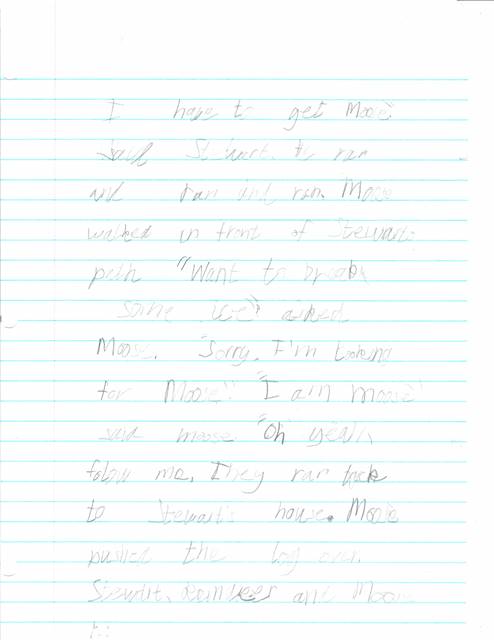 I have to get Moose"
said Stewart. He ran
and ran and ran. Moose
walked in front of Stewarts
path "Want to break
some ice"? asked
Moose. "Sorry, I'm looking
for Moose". "I am moose"
said moose "Oh yeah,
follow me. They ran back
to Stewart's house. Moose
pushed the log over.
Stewart, Reindeer and Moose